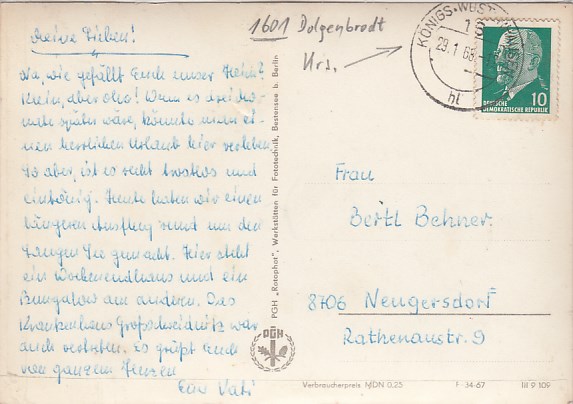 Meine Lieben!
Na, wie gefällt Euch unser Heim?
Klein, aber oho! Wenn es drei Mo-
nate später wäre, könnte man ei-
nen herrlichen Urlaub hier verleben.
So aber, ist es recht trostlos und
eintönig. Heute haben wir einen
längeren Ausflug rund um den
Langen See gemacht. Hier steht
ein Wochenendhaus und ein
Bungalow am anderen. Das
Krankenhaus Großschweidnitz war
auch vertreten. Es grüßt Euch
von ganzem Herzen
Euer Vati
PGH „Rotophot", Werkstätten für Fototechnik, Bestensee b. Berlin
1601 Dolgenbrodt
Krs.
KÖNIGS WUST
1
29.1.68
DEUTSCHE
DEMOKRATISCHE REPUBLIK
10
Frau
Bertl Behner
8706 Neugersdorf
Rathenaustr. 9
PGH
Verbraucherpreis MDN 0,25
F 34-67
III 9 109